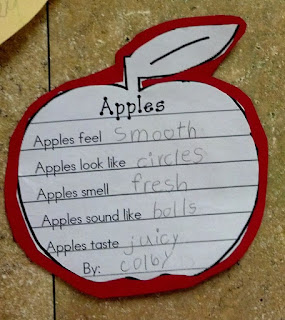 Apples
Apples feel smooth
Apples look like circles
Apples smell fresh
Apples sound like balls
Apples taste juicy
By: colby